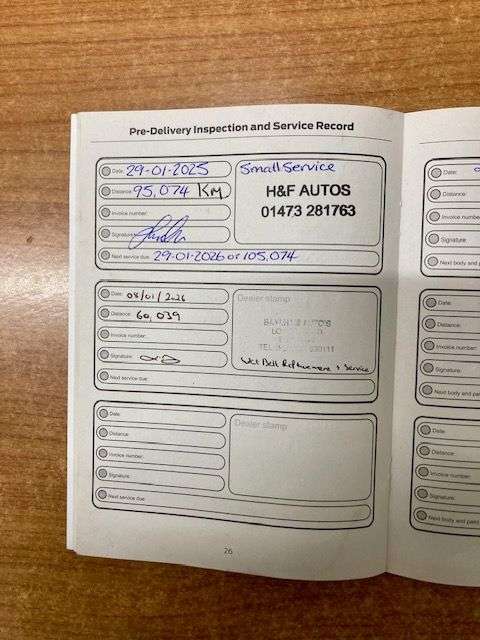 Pre-Delivery Inspection and Service Record
Date: 29-01-2025
Small Service
Distance: 95,074 KM
H&F AUTOS
01473 281763
Invoice number:
Signature:
Next service due: 29-01-2026 or 105,074
Date: 08/01/2026
Dealer stamp
Distance: 60,039
Invoice number:
TEL
Signature:
Wet Belt Replacement & Service
Next service due:
Date:
Dealer stamp
Distance:
Invoice number:
Signature:
Next service due:
26
Date:
Distance:
Invoice numbe
Signature:
Next body and p
Date:
Distance:
Invoice number:
Signature:
Next body and p
Date:
Distance:
Invoice number:
Signature:
Next body and paint